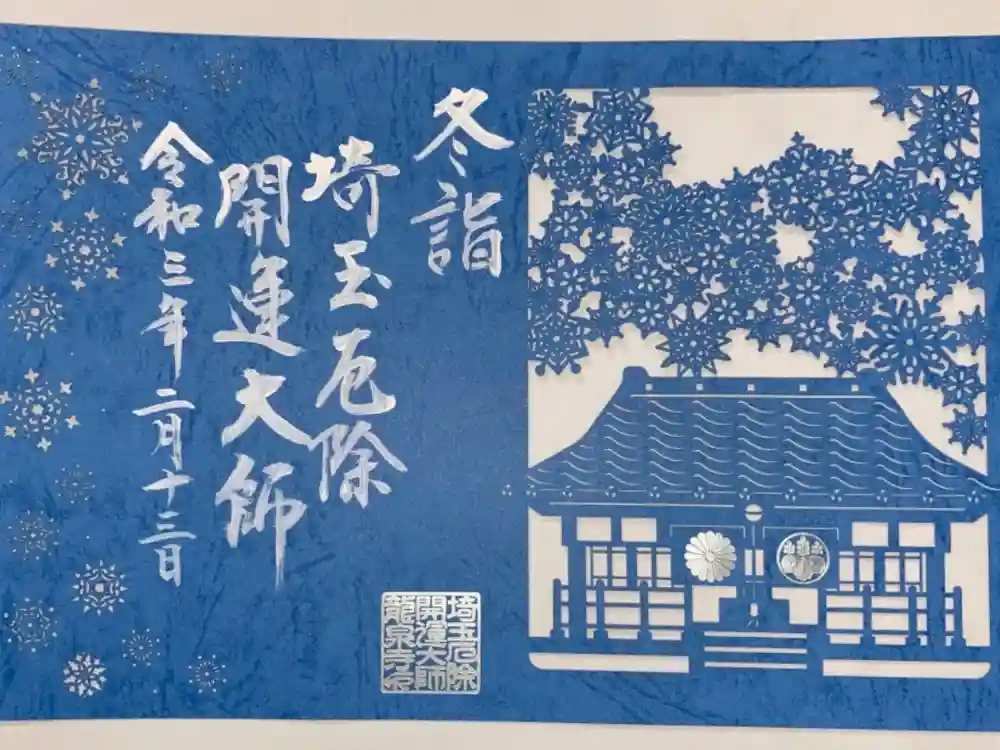 冬詣
埼玉厄除
開運大師
令和三年二月十三日
埼玉厄除
開運大師
龍泉寺